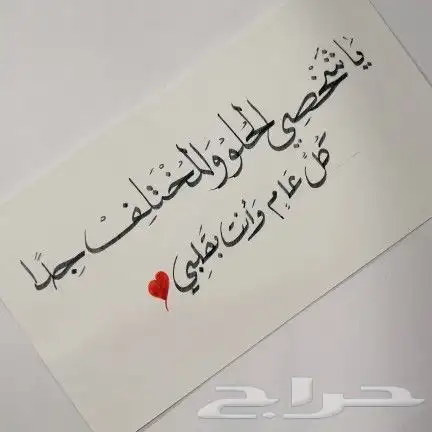 يَا شَخْصِي الحُلو وَالمُخْتَلِف جِدًا
كُلُّ عَامٍ وَأنت بقَلبِي
حراج